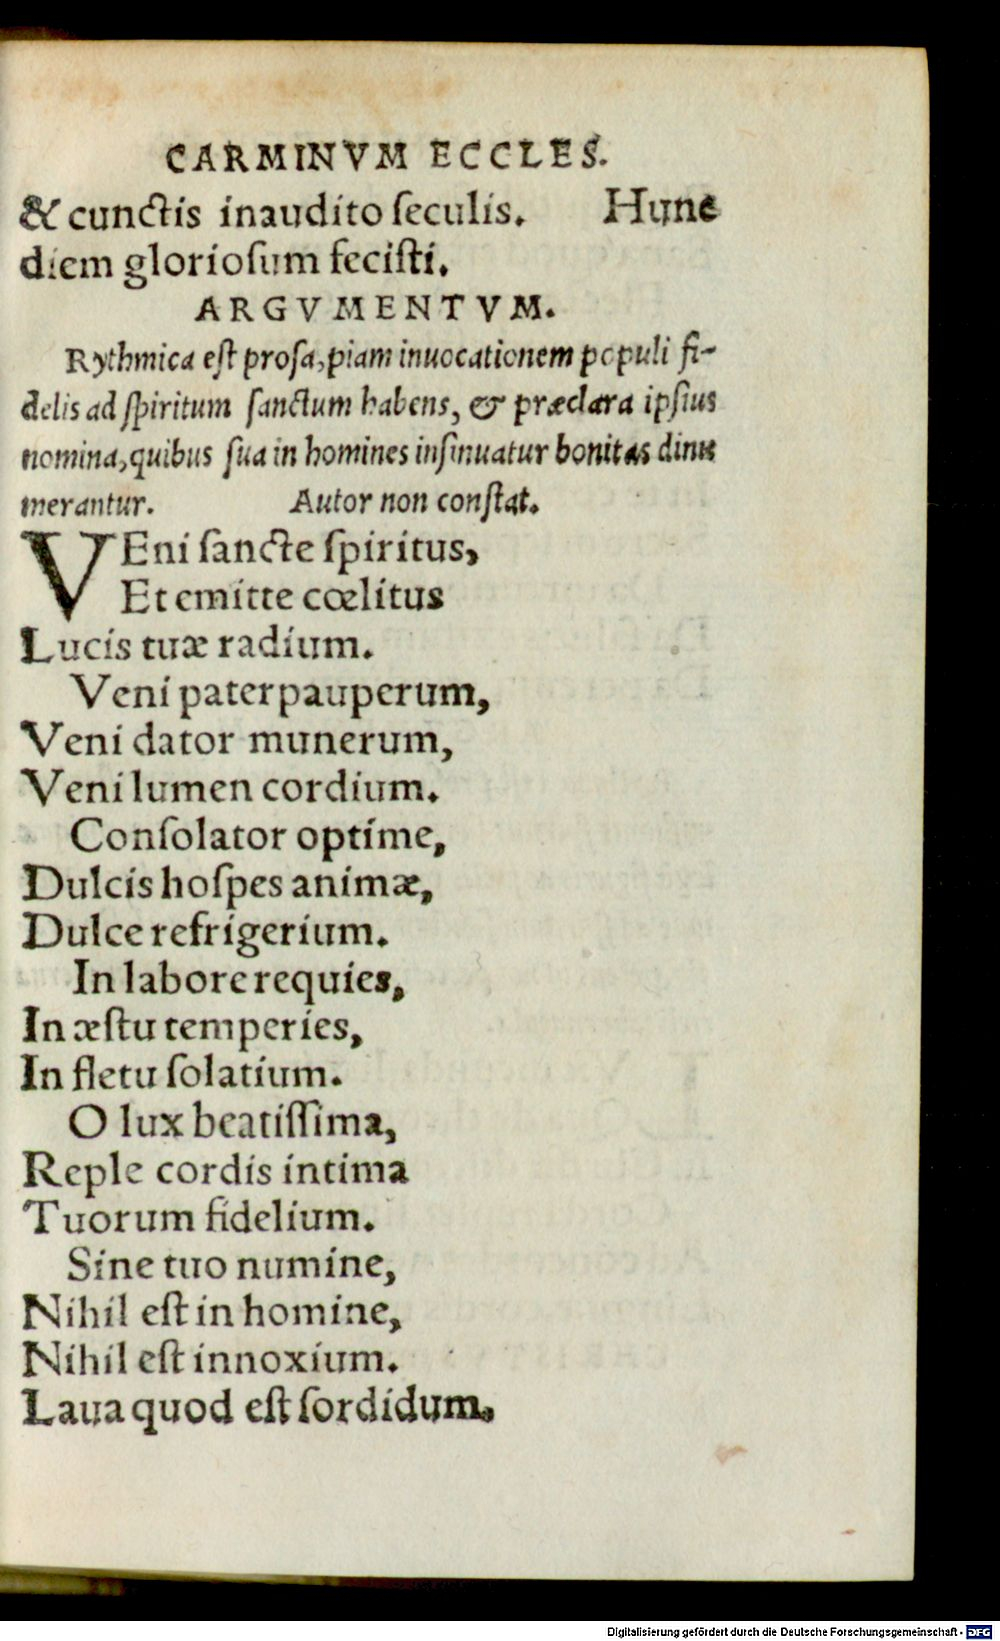 CARMINVM ECCLES.
& cunctis inaudito ſeculis. Hunc
diem glorioſum feciſti.
ARGVMENTVM.
Rythmica eſt proſa, piam inuocationem populi fi-
delis ad ſpiritum ſanctum habens, & præclara ipſius
nomina, quibus ſua in homines inſinuatur bonitas dinu
merantur. Autor non conſtat.
VEni ſancte ſpiritus,
Et emitte cœlitus
Lucis tuæ radium.
Veni pater pauperum,
Veni dator munerum,
Veni lumen cordium.
Conſolator optime,
Dulcis hoſpes animæ,
Dulce refrigerium.
In labore requies,
In æſtu temperies,
In fletu ſolatium.
O lux beatiſſima,
Reple cordis intima
Tuorum fidelium.
Sine tuo numine,
Nihil eſt in homine,
Nihil eſt innoxium.
Laua quod eſt ſordidum,
Digitalisierung gefördert durch die Deutsche Forschungsgemeinschaft - DFG